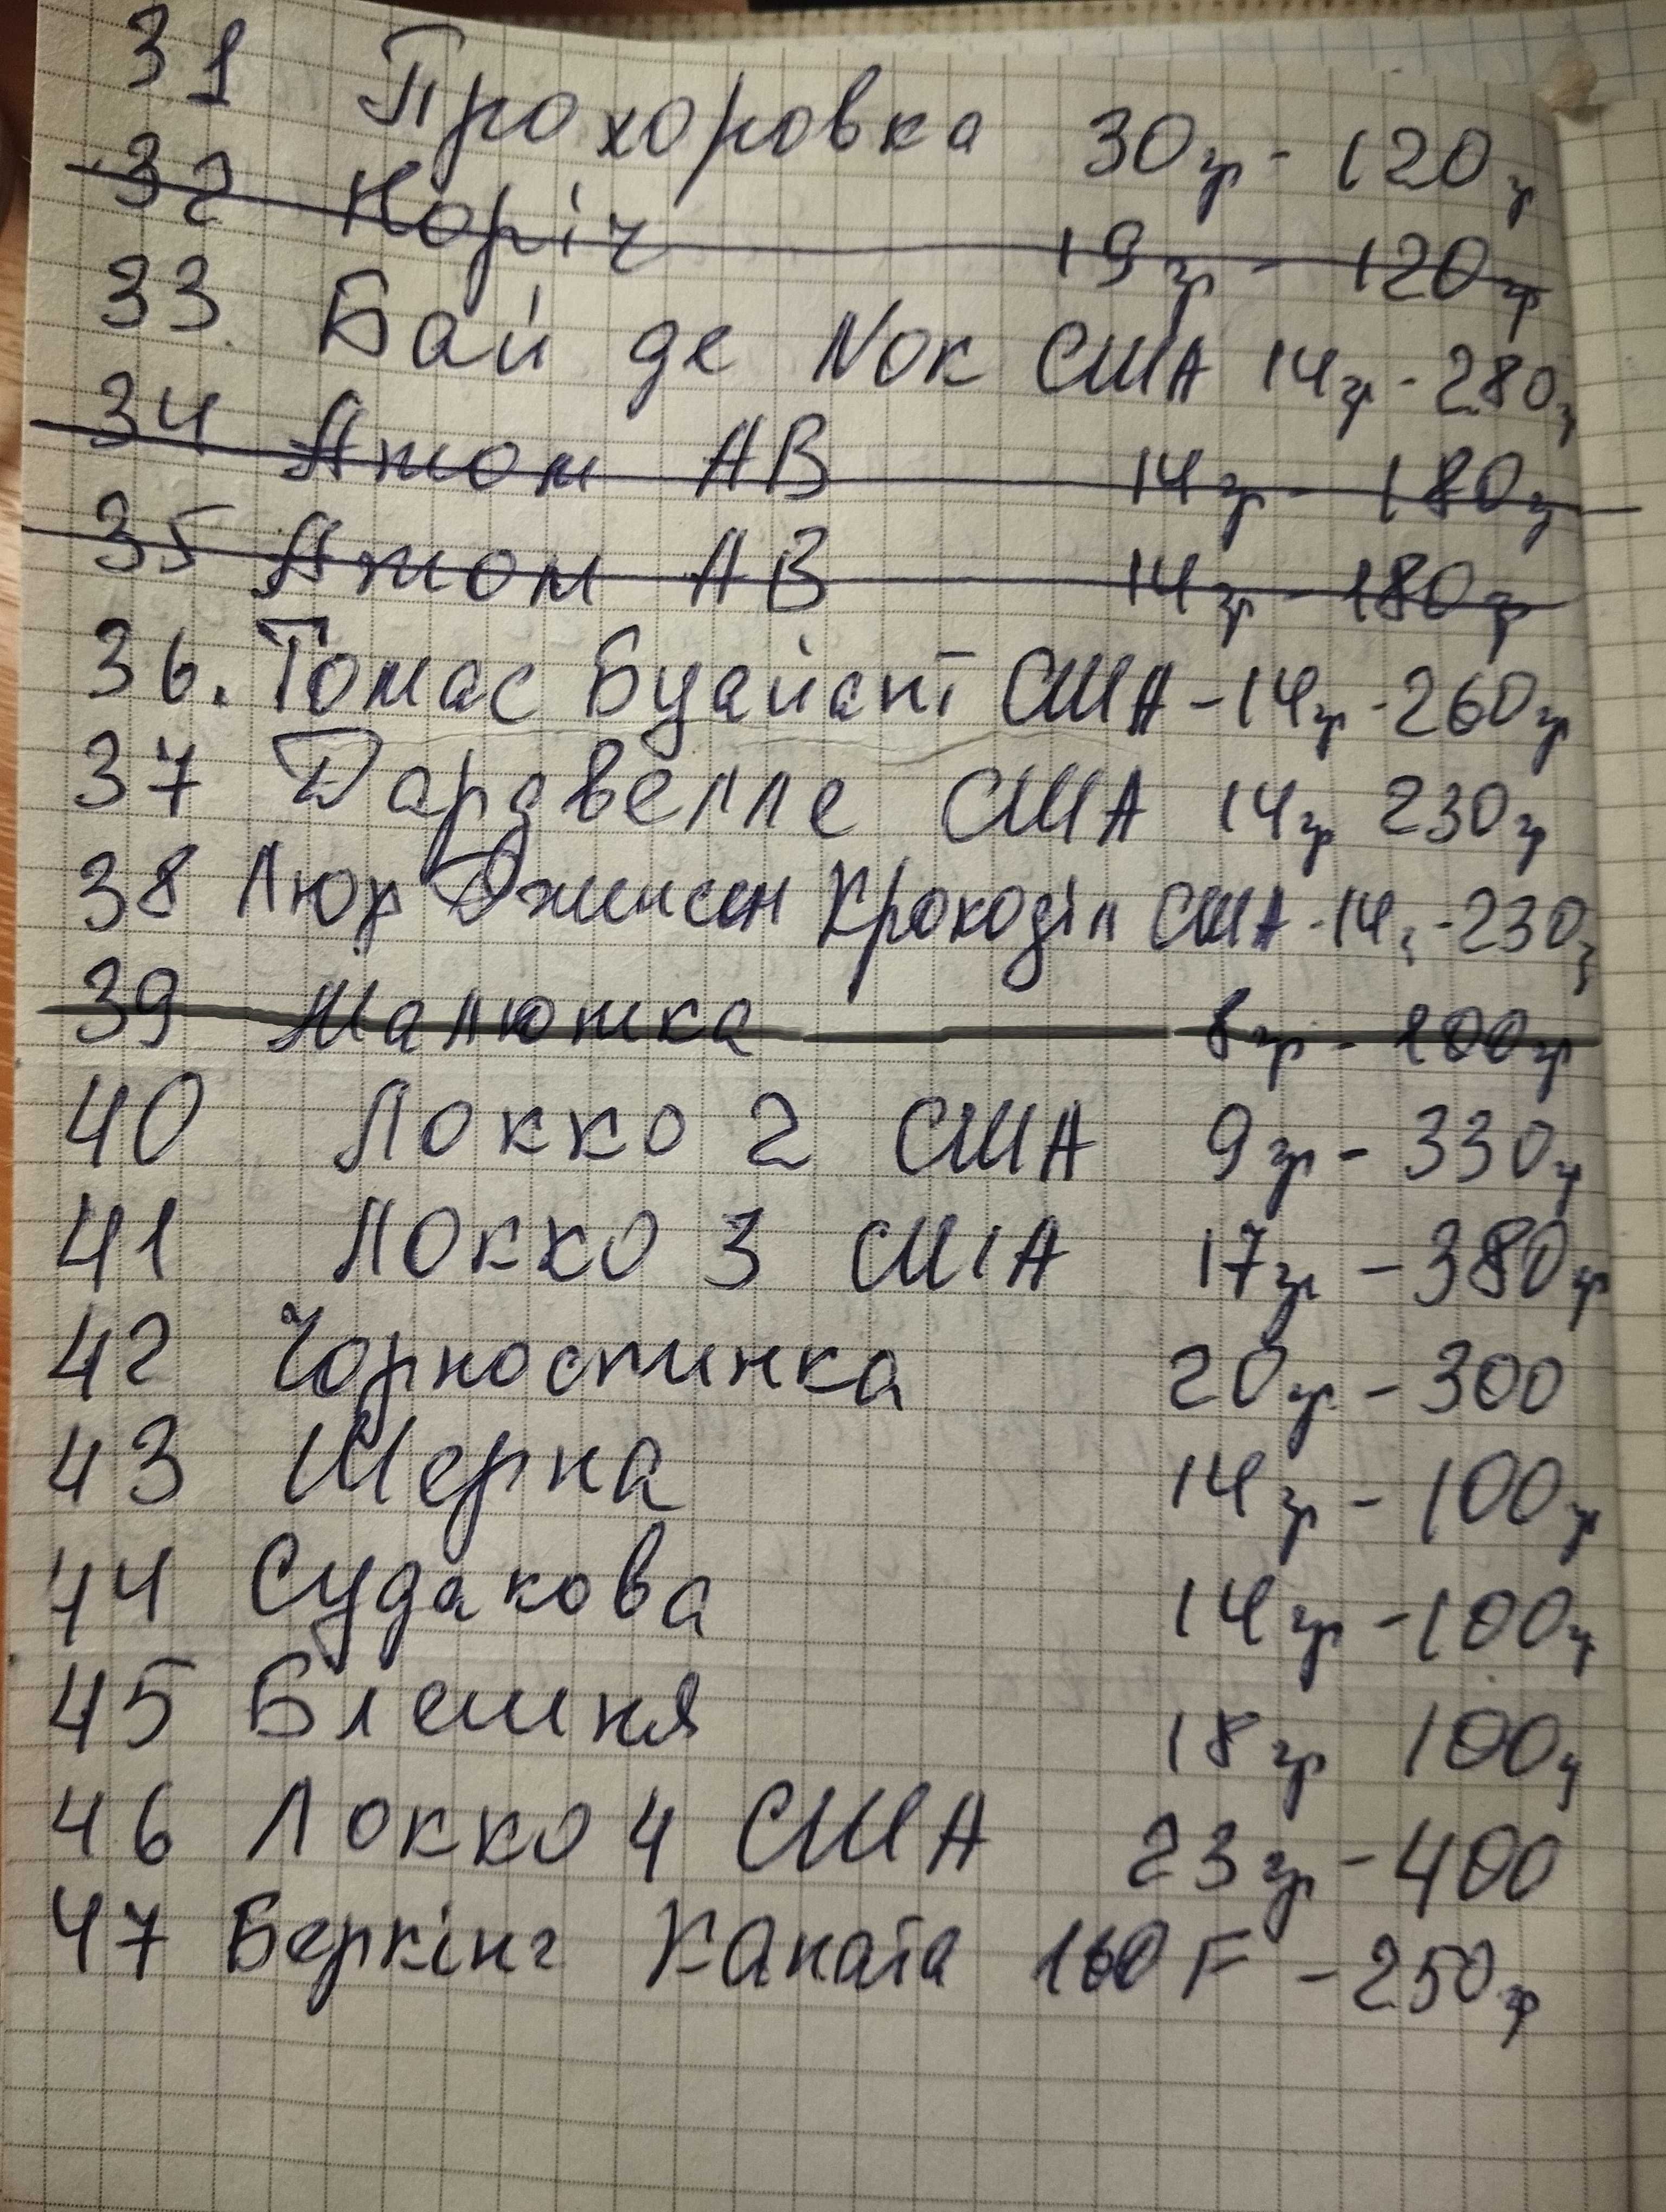 31 Прохоровка 30гр - 120гр
32 Коріч 19гр - 120гр
33 Бай де Nок США 14гр - 280г
34 Атом АВ 14гр - 180г
35 Атом АВ 14гр - 180гр
36. Томас Буайант США - 14гр - 260гр
37 Дардвелле США 14гр 230гр
38 Люр Дженсен Крокоділ США - 14г - 230г
39 Малютка 8гр - 100гр
40 Локко 2 США 9гр - 330г
41 Локко 3 США 17гр - 380гр
42 Чорноспинка 20гр - 300
43 Шерка 14гр - 100г
44 Судакова 14гр - 100г
45 Блешня 18гр 100г
46 Локко 4 США 23гр - 400
47 Беркінг Каната 160 F - 250гр